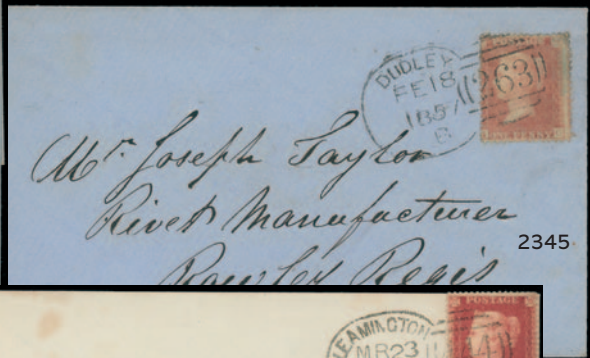 DUDLEY
FE 18
1857
6
263
ONE PENNY
Mr. Joseph Taylor
Rivet Manufacturer
2345
Rowley Regis
POSTAGE
LEAMINGTON
MR 23